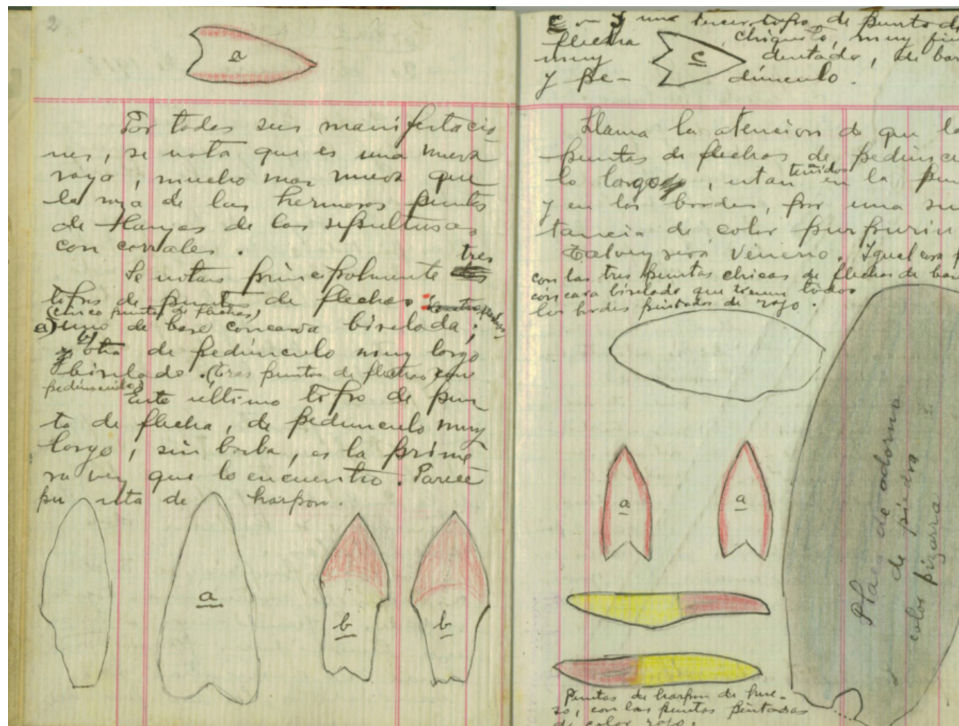 2
a
Por todas sus manifestacio
nes, se nota que es una nueva
raza, mucho mas nueva que
la raza de las hermosas puntas
de flanjes de las sepulturas
con corrales.
Se notan principalmente tres
tipos de puntas de flechas:
(cinco puntas de flechas)
a) uno de base concava biselada;
b) otra de pedunculo muy largo
biselado. (tres puntas de flechas con
pedunculo)
Este ultimo tipo de pun
ta de flecha, de pedunculo muy
largo, sin barba, es la prime
ra vez que lo encuentro. Parece
punta de harpon.
a
b
b
c - y una tercer tipo de punta de
flecha chiquita, muy fin
muy c dentado, de bas
y pe- dunculo.
Llama la atencion de que la
puntas de flechas de peduncu
lo largo, estan teñidos en la pun
y en los bordes, por una sus
tancia de color purpurin
Talvez será veneno. Igual cosa p
con las tres puntas chicas de flechas de bas
concava biselada que tienen todos
los bordes pintados de rojo.
a
a
Placa de adorno
de piedra
color pizarra
Puntas de harpon de hue-
so, con las puntas pintadas
de color rojo.